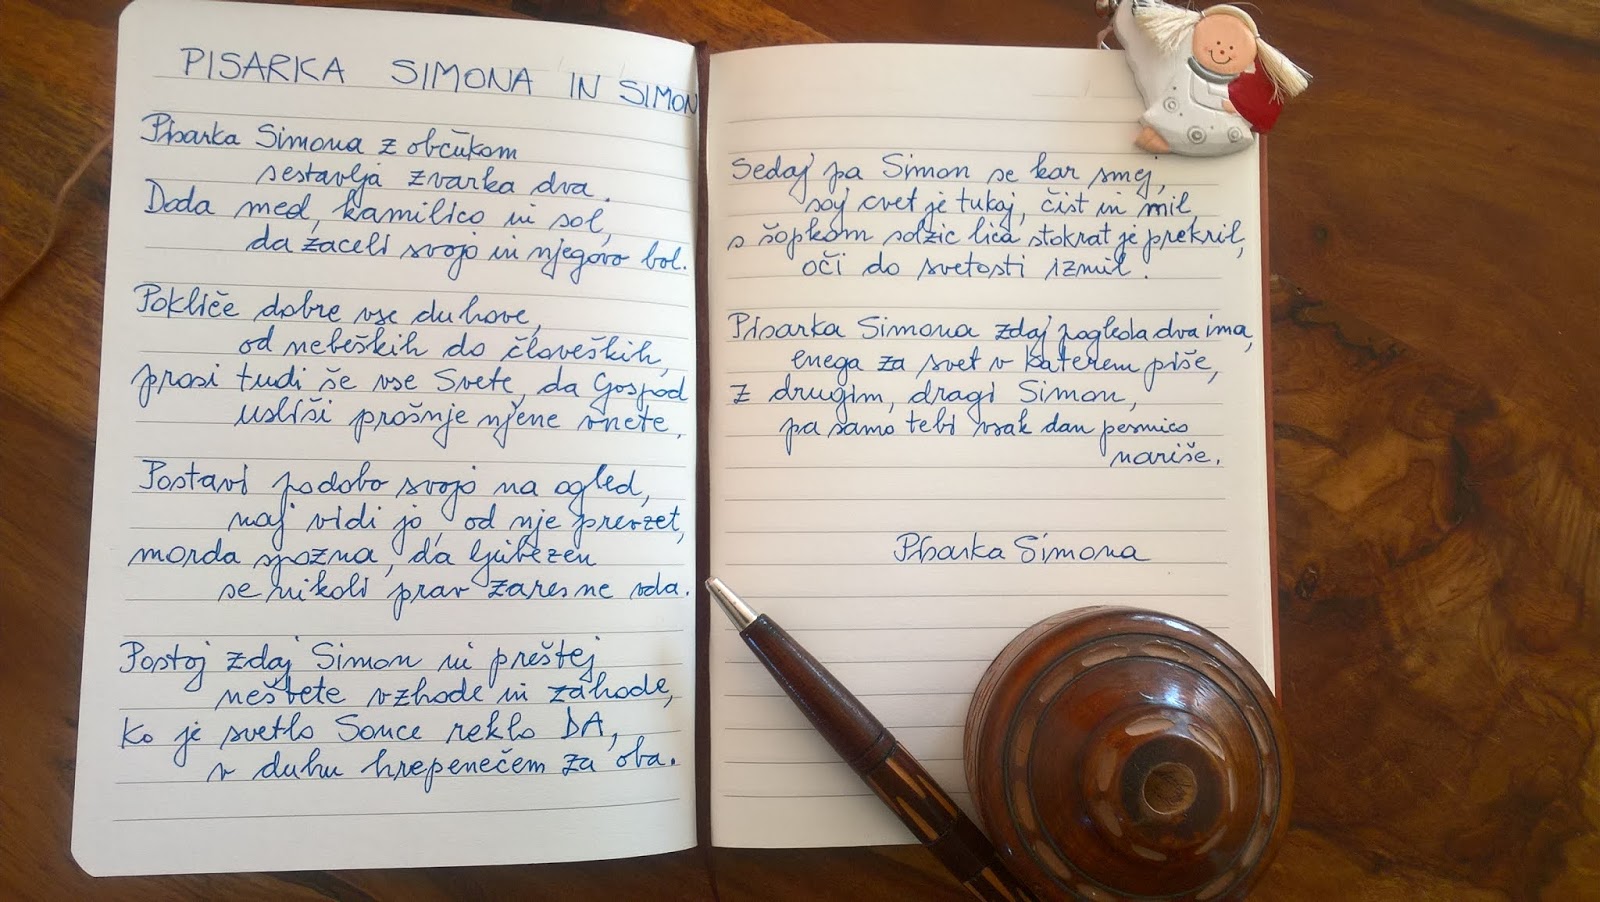 PISARKA SIMONA IN SIMON
Pisarka Simona z občukom
sestavlja zvarka dva.
Doda med, kamilico in sol,
da zaceli svojo in njegovo bol.
Pokliče dobre vse duhove,
od nebeških do človeških,
prosi tudi še vse Svete, da Gospod
usliši prošnje njene vnete.
Postavi podobo svojo na ogled,
naj vidi jo, od nje prevzet,
morda spozna, da ljubezen
se nikoli prav zares ne vda.
Postoj zdaj Simon in preštej
neštete vzhode in zahode,
ko je svetlo Sonce reklo DA,
v duhu hrepenečem za oba.
Sedaj pa Simon se kar smej,
soj cvet je tukaj, čist in mil,
s šopkom solzic lica stokrat je prekril,
oči do svetosti izmil.
Pisarka Simona zdaj pogleda dva ima,
enega za svet v katerem piše,
z drugim, dragi Simon,
pa samo tebi vsak dan pesmico
nariše.
Pisarka Simona